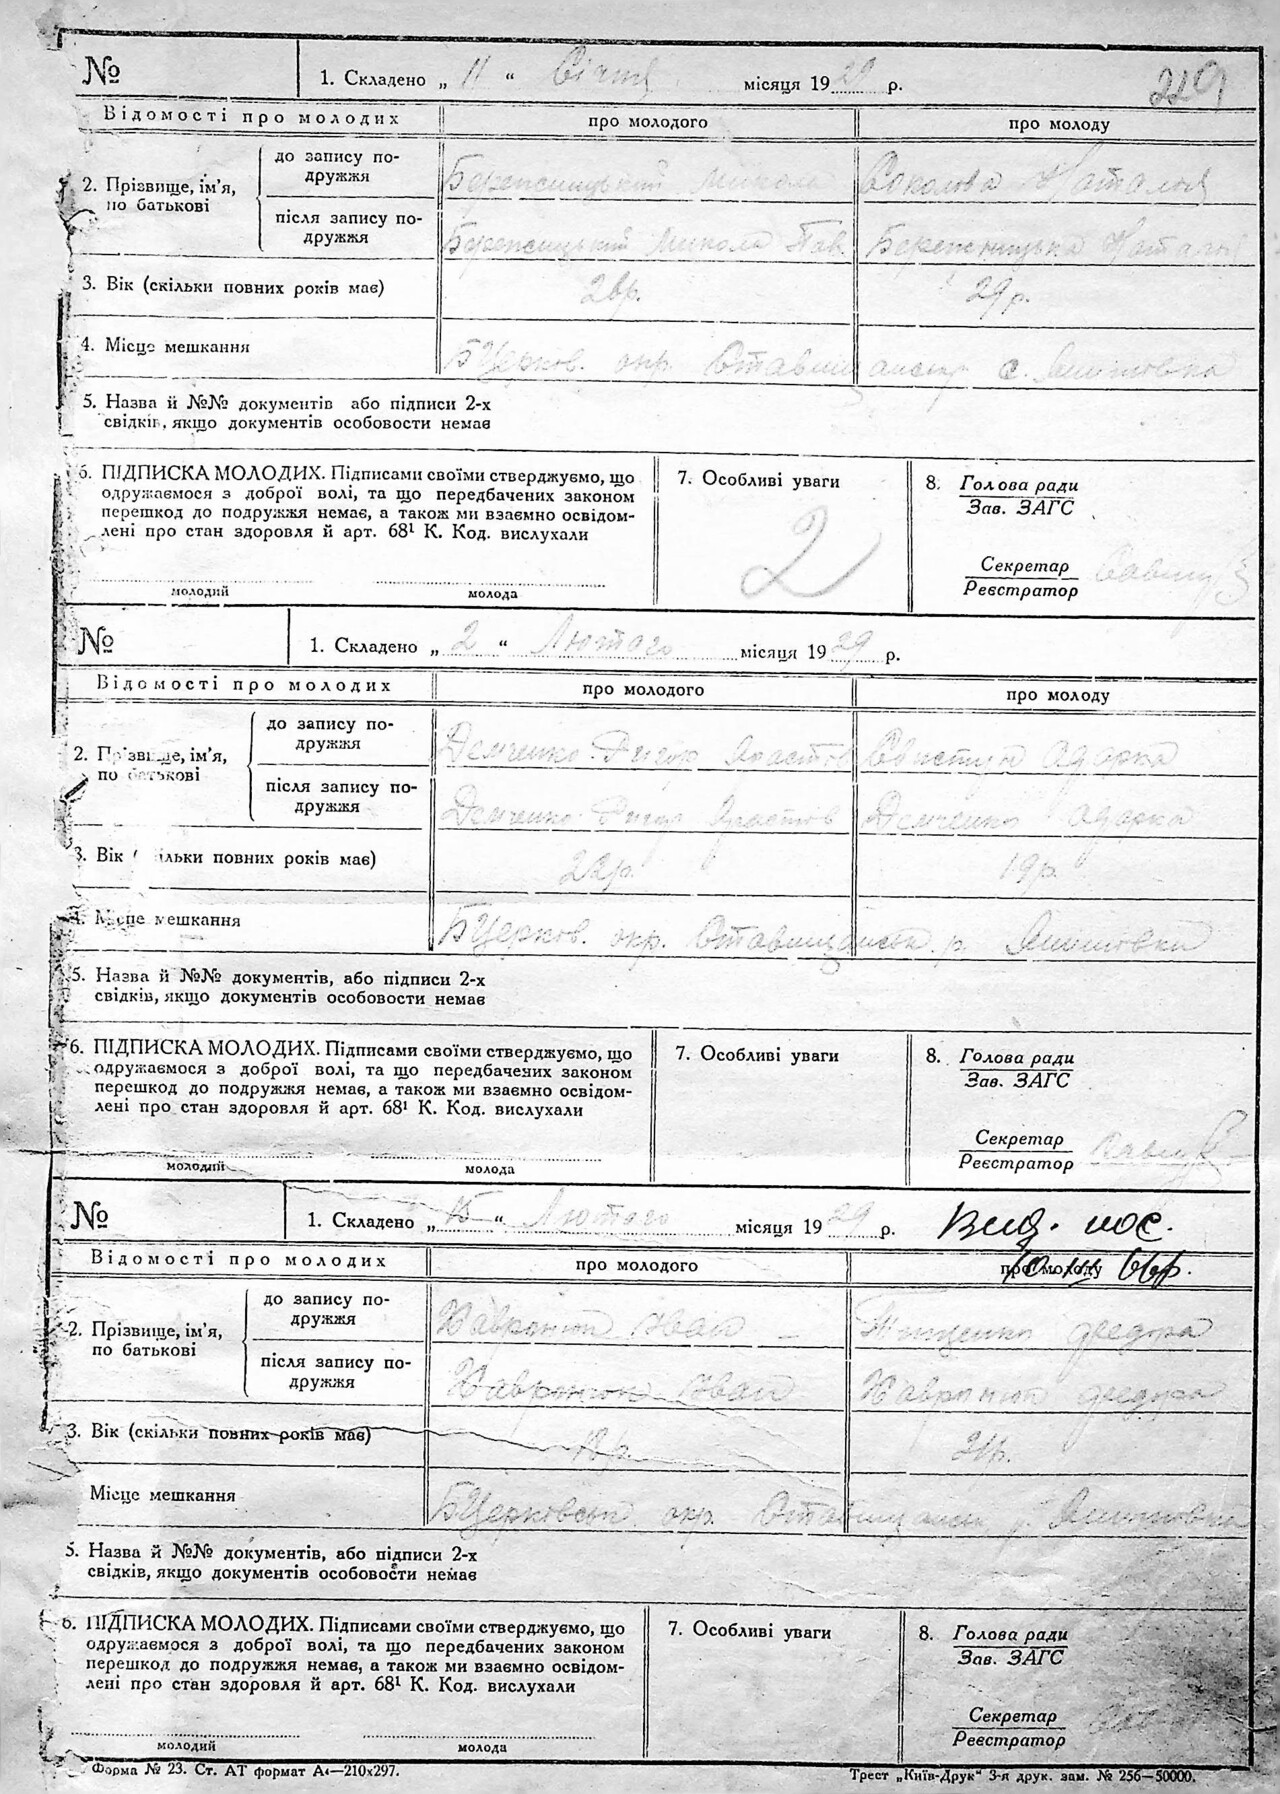 № 1. Складено „ 11 “ Січня місяця 1929 р. 229
Відомості про молодих про молодого про молоду
2. Прізвище, ім’я, по батькові
до запису подружжя Бережницький Микола Соколова Наталья
після запису подружжя Бережницький Микола Пав. Бережницька Наталья
3. Вік (скільки повних років має) 29 р.
4. Місце мешкання БЦерков. окр. Ставищанськ с.
5. Назва й №№ документів або підписи 2-х
свідків, якщо документів особовости немає
6. ПІДПИСКА МОЛОДИХ. Підписами своїми стверджуємо, що
одружаємося з доброї волі, та що передбачених законом
перешкод до подружжя немає, а також ми взаємно освідом-
лені про стан здоровля й арт. 68¹ К. Код. вислухали
молодий молода
7. Особливі уваги
2
8. Голова ради
Зав. ЗАГС
Секретар
Реєстратор
№ 1. Складено „ 2 “ Лютого місяця 1929 р.
Відомості про молодих про молодого про молоду
2. Прізвище, ім’я, по батькові
до запису подружжя Демченко Свистун Одарка
після запису подружжя Демченко Демченко Одарка
3. Вік (скільки повних років має) 22р. 19р.
4. Місце мешкання БЦерков. окр. Ставищанськ р.
5. Назва й №№ документів, або підписи 2-х
свідків, якщо документів особовости немає
6. ПІДПИСКА МОЛОДИХ. Підписами своїми стверджуємо, що
одружаємося з доброї волі, та що передбачених законом
перешкод до подружжя немає, а також ми взаємно освідом-
лені про стан здоровля й арт. 68¹ К. Код. вислухали
молодий молода
7. Особливі уваги
8. Голова ради
Зав. ЗАГС
Секретар
Реєстратор
№ 1. Складено „ 15 “ Лютого місяця 1929 р. Вид. пос.
66р.
Відомості про молодих про молодого про молоду
2. Прізвище, ім’я, по батькові
до запису подружжя Хавронюк Иван Федора
після запису подружжя Хавронюк Иван Хавронюк Федора
3. Вік (скільки повних років має) 18р. 21р.
Місце мешкання БЦерковськ окр. Ставищанськ р.
5. Назва й №№ документів, або підписи 2-х
свідків, якщо документів особовости немає
6. ПІДПИСКА МОЛОДИХ. Підписами своїми стверджуємо, що
одружаємося з доброї волі, та що передбачених законом
перешкод до подружжя немає, а також ми взаємно освідом-
лені про стан здоровля й арт. 68¹ К. Код. вислухали
молодий молода
7. Особливі уваги
8. Голова ради
Зав. ЗАГС
Секретар
Реєстратор
Форма № 23. Ст. АТ формат А4—210x297. Трест „Київ-Друк“ 3-я друк. зам. № 256—50000.